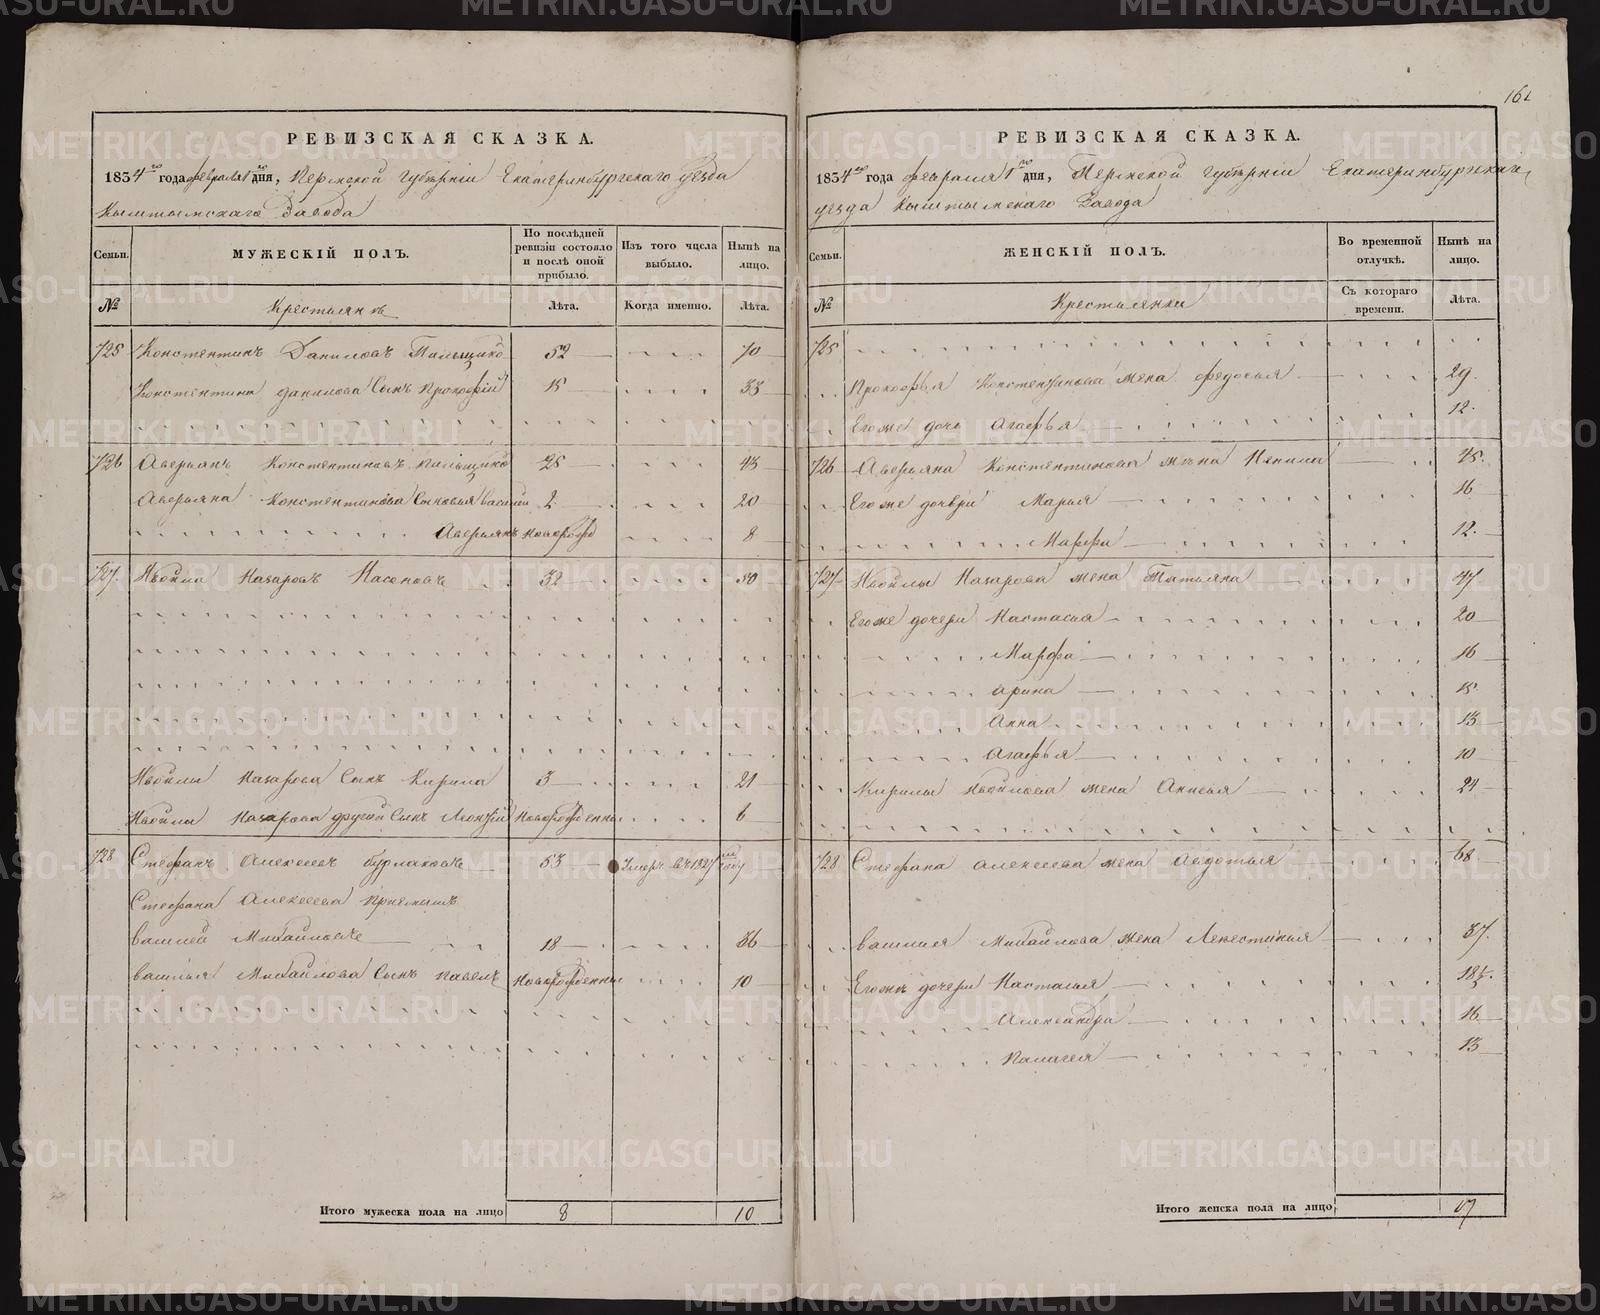 161
РЕВИЗСКАЯ СКАЗКА.
1834го года февраля 1го дня, Пермской Губерніи Екатеринбургскаго Уезда
Кыштымскаго Завода
Семьи.
МУЖЕСКІЙ ПОЛЪ.
По послѣдней ревизіи состояло и послѣ оной прибыло.
Изъ того числа выбыло.
Нынѣ на лицо.
№
Крестьянъ
Лѣта.
Когда именно.
Лѣта.
725 Констентинъ Даниловъ 52 70
Констентина данилова Сынъ Прокофій 15 33
726 Аверьянъ Констентиновъ 25 43
Аверьяна Констентинова Сыновья василий 2 20
Аверьянъ новорожд 8
727 Назаровъ Насоновъ 32 50
Назарова Сынъ Кирила 3 21
Назарова другий Сынъ Леонтий Новорожденны 6
728 Стефанъ Алексеевъ бурлаковъ 53 Умеръ въ 1827 году
Стефана Алексеева Приемышъ
василей Михайловъ 18 36
василья Михайлова Сынъ павелъ Новорожденны 10
Итого мужеска пола на лицо 8 10
РЕВИЗСКАЯ СКАЗКА.
1834го года февраля 1го дня, Пермской Губерніи Екатеринбургскаго
уезда Кыштымскаго Завода
Семьи.
ЖЕНСКІЙ ПОЛЪ.
Во временной отлучкѣ.
Нынѣ на лицо.
№
Крестьянки
Съ котораго времени.
Лѣта.
725
Прокофья Констентинова жена федосья 29.
Его же дочь Агафья 12.
726 Аверьяна Констентинова жена Ненила 45.
Его же дочери Марья 16
Марфа 12.
727 Назарова жена Татьяна 47
Его же дочери Настасья 20
Марфа 16
арина 15
Анна 13
Агафья 10
Кирилы жена Анисья 24
728 Стефана алексеева жена Авдотья 68
василья Михайлова жена 37.
Его же дочери Настасья 18½.
Александра 16
Палагея 13
Итого женска пола на лицо 17
METRIKI.GASO-URAL.RU